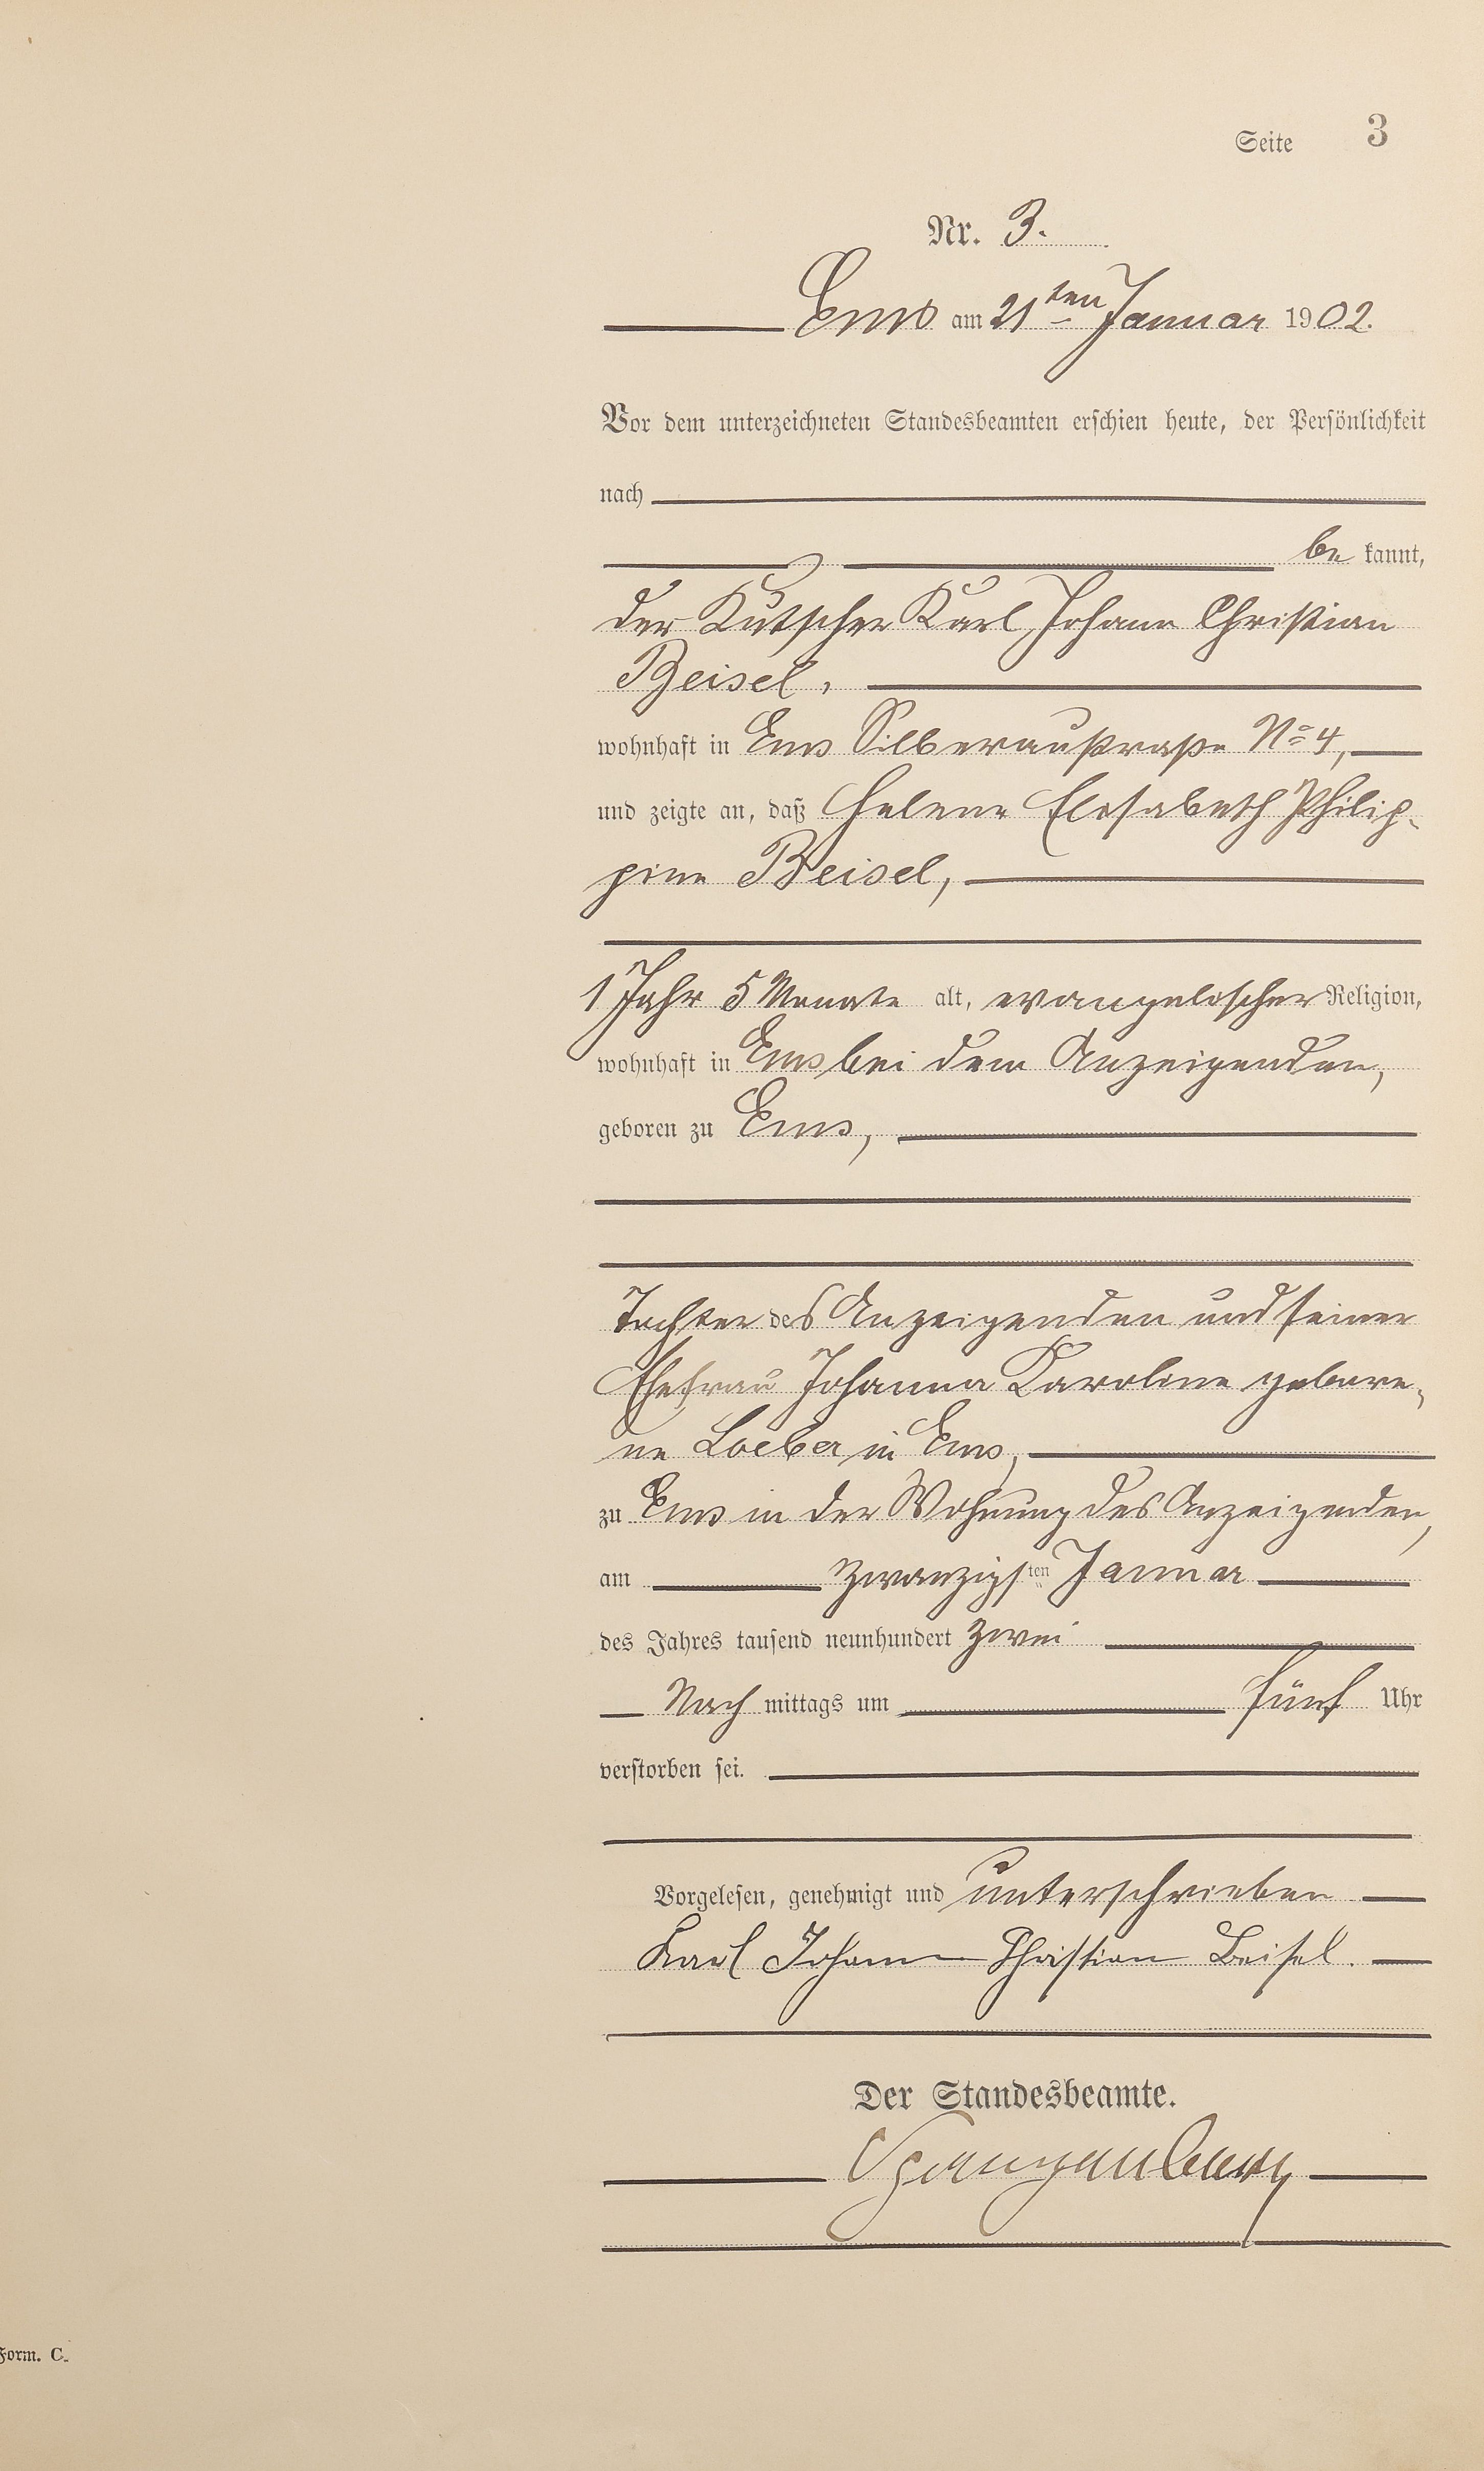 Seite 3
Nr. 3.
Ems am 21ten Januar 1902.
Vor dem unterzeichneten Standesbeamten erschien heute, der Persönlichkeit
nach
be kannt,
der Kutscher Karl Johann Christian
Beisel,
wohnhaft in Ems Silberaustraße No 4,
und zeigte an, daß Helene Elisabeth Philip-
pine Beisel,
1 Jahr 5 Monate alt, evangelischer Religion,
wohnhaft in Ems bei dem Anzeigenden,
geboren zu Ems,
Tochter des Anzeigenden und seiner
Ehefrau Johanna Karoline gebore-
ne Loeber in Ems,
zu Ems in der Wohnung des Anzeigenden,
am zwanzigsten Januar
des Jahres tausend neunhundert zwei
Nach mittags um fünf Uhr
verstorben sei.
Vorgelesen, genehmigt und unterschrieben
Karl Johann Christian Beisel.
Der Standesbeamte.
Form. C.